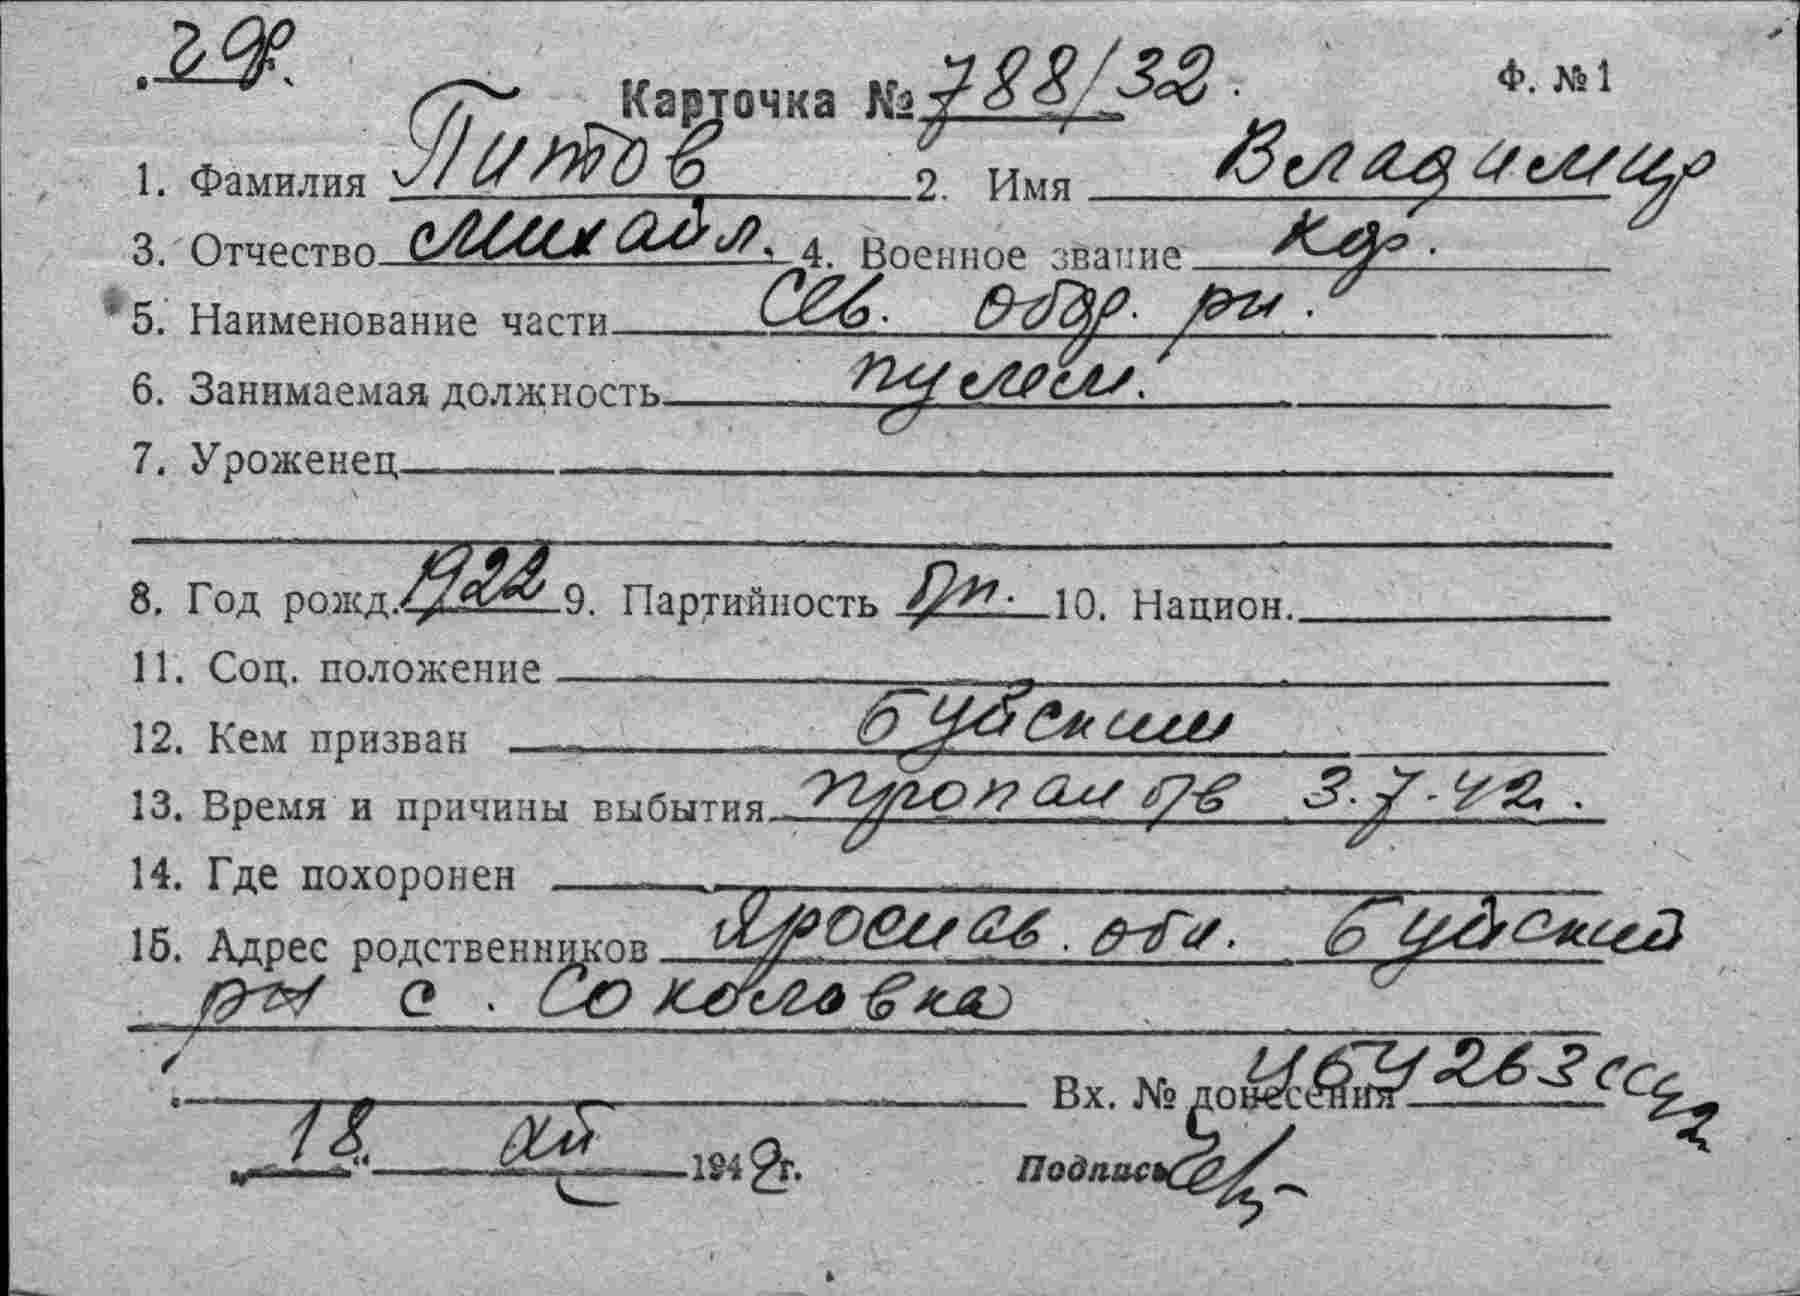 Карточка № 788/32. Ф. №1
1. Фамилия Питов 2. Имя Владимир
3. Отчество Михайл. 4. Военное звание кр.
5. Наименование части Сев. обор. рн.
6. Занимаемая должность пулем.
7. Уроженец
8. Год рожд. 1922 9. Партийность бп. 10. Национ.
11. Соц. положение
12. Кем призван Буйским
13. Время и причины выбытия пропал б/в 3.7.42.
14. Где похоронен
15. Адрес родственников Ярослав. обл. Буйский
рн с. Соколовка
Вх. № донесения
„18“ 1942г. Подпись